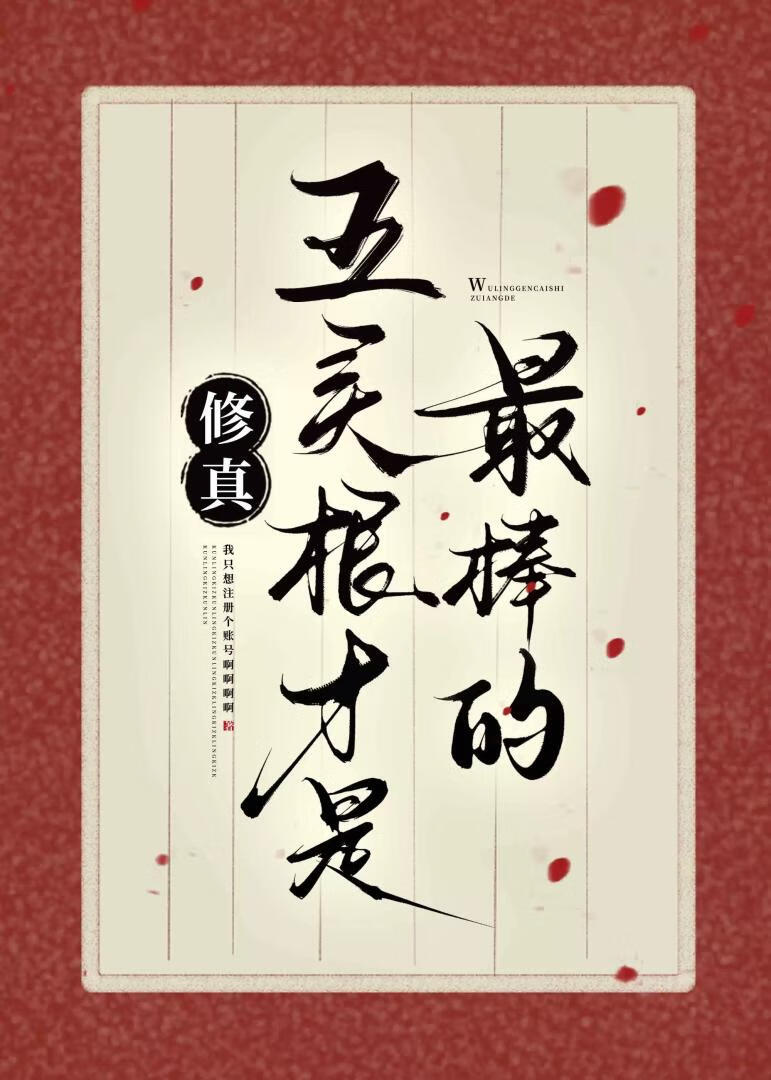 修真
五灵根才是
最棒的
WULINGGENCAISHI
ZUIANGDE
我只想注册个账号啊啊啊啊 著
KUNLINGKIZKUNLINGKIZKUNLINGKIZKLINGKIZKLINGKIZK
KUNLINGKIZKUNLIN